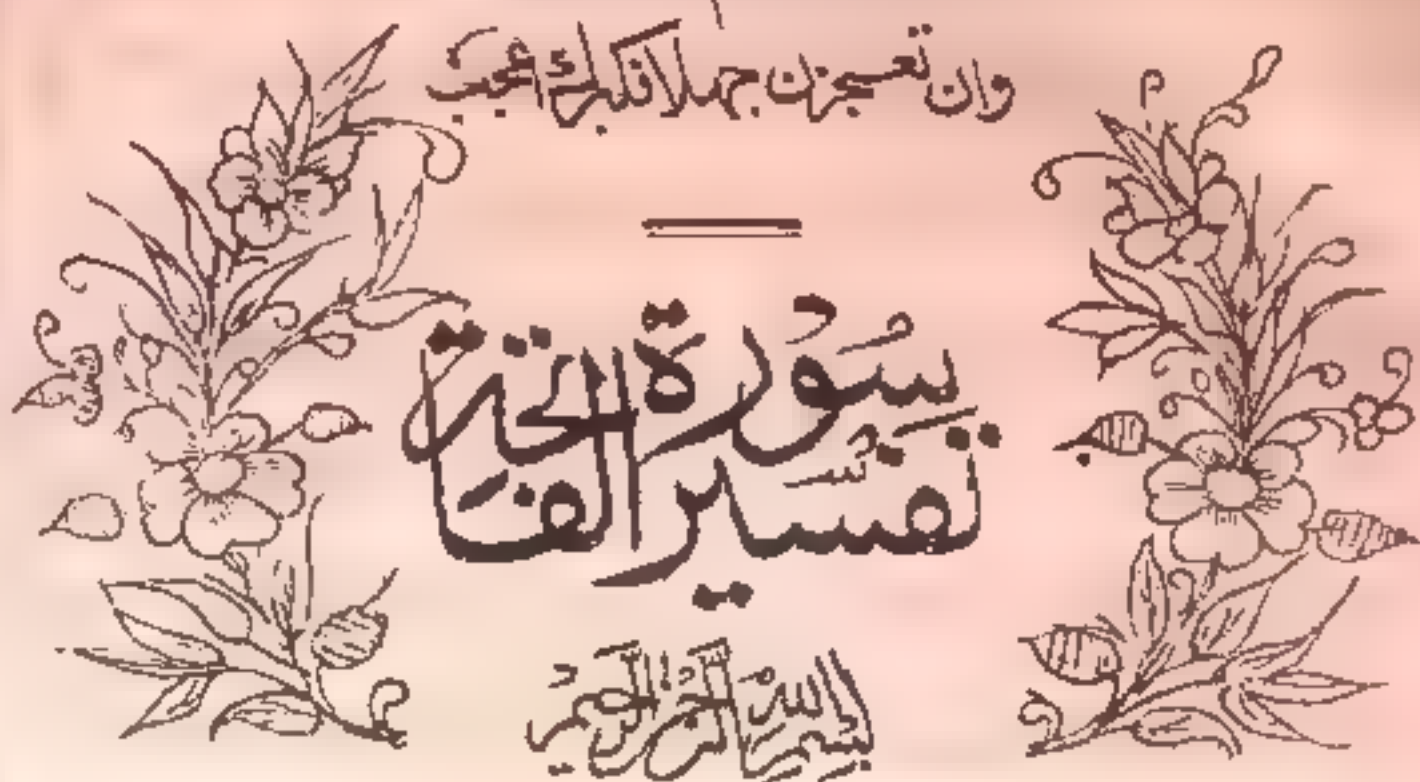 وان تعجزن جهلا فكبرك أعجب
تفسير سورة الفاتحة
بسم الله الرحمن الرحيم